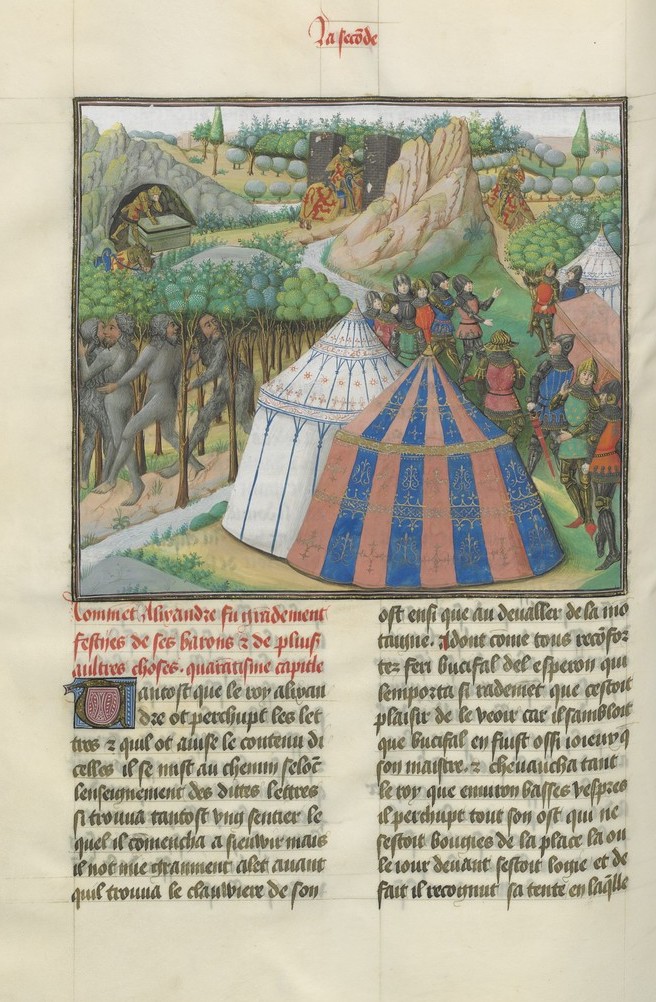 La secõde
Commet Alixandre fu grãdement
festyes de ses barons ⁊ de pluis̃
aultres choses. quarantisme capitle
Tantost que le roy alixan
dre ot perchupt les let
tres ⁊ quil ot auise le contenu di
celles il se mist au chemin selõc
lenseignement des dittes lettres
si trouua tantost vng sentier le
quel il cõmencha a sieuwir mais
il not mie gramment alet auant
quil trouua le clauwiere de son
ost ensi que au deualler de la mõ
taigne. Adont come tous recõfor
tez feri bucifal del esperon qui
lemporta si rademẽt que cestoit
plaisir de le veoir car il sambloit
que bucifal en fuist ossi ioieux q̃
son maistre. ⁊ cheuaucha tant
le roy que enuiron basses vespres
il perchupt tout son ost qui ne
sestoit bougies de la place la ou
le iour deuant sestoit logie et de
fait il recognut sa tente en laq̃lle